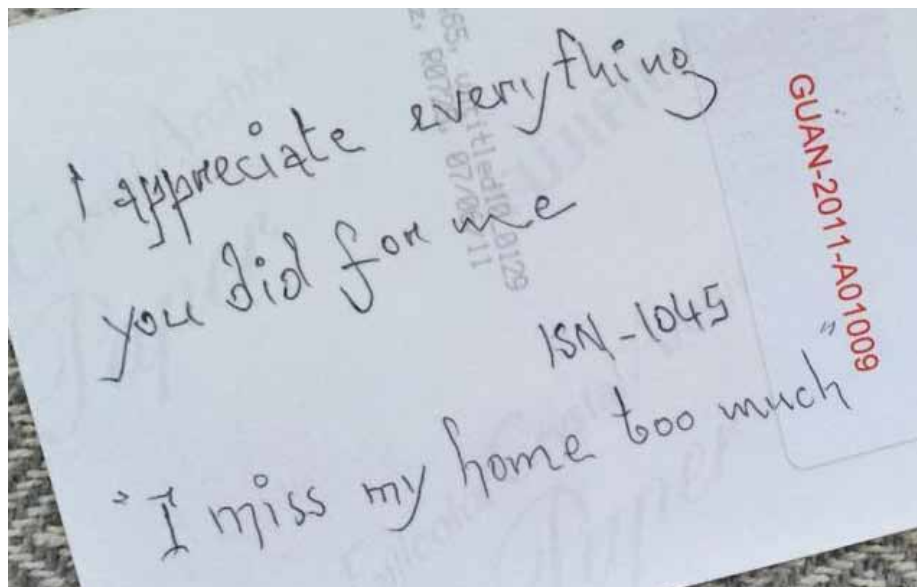 I appreciate everything
you did for me
ISN-1045
"I miss my home too much"
GUAN-2011-A01009
07/0
11
0129